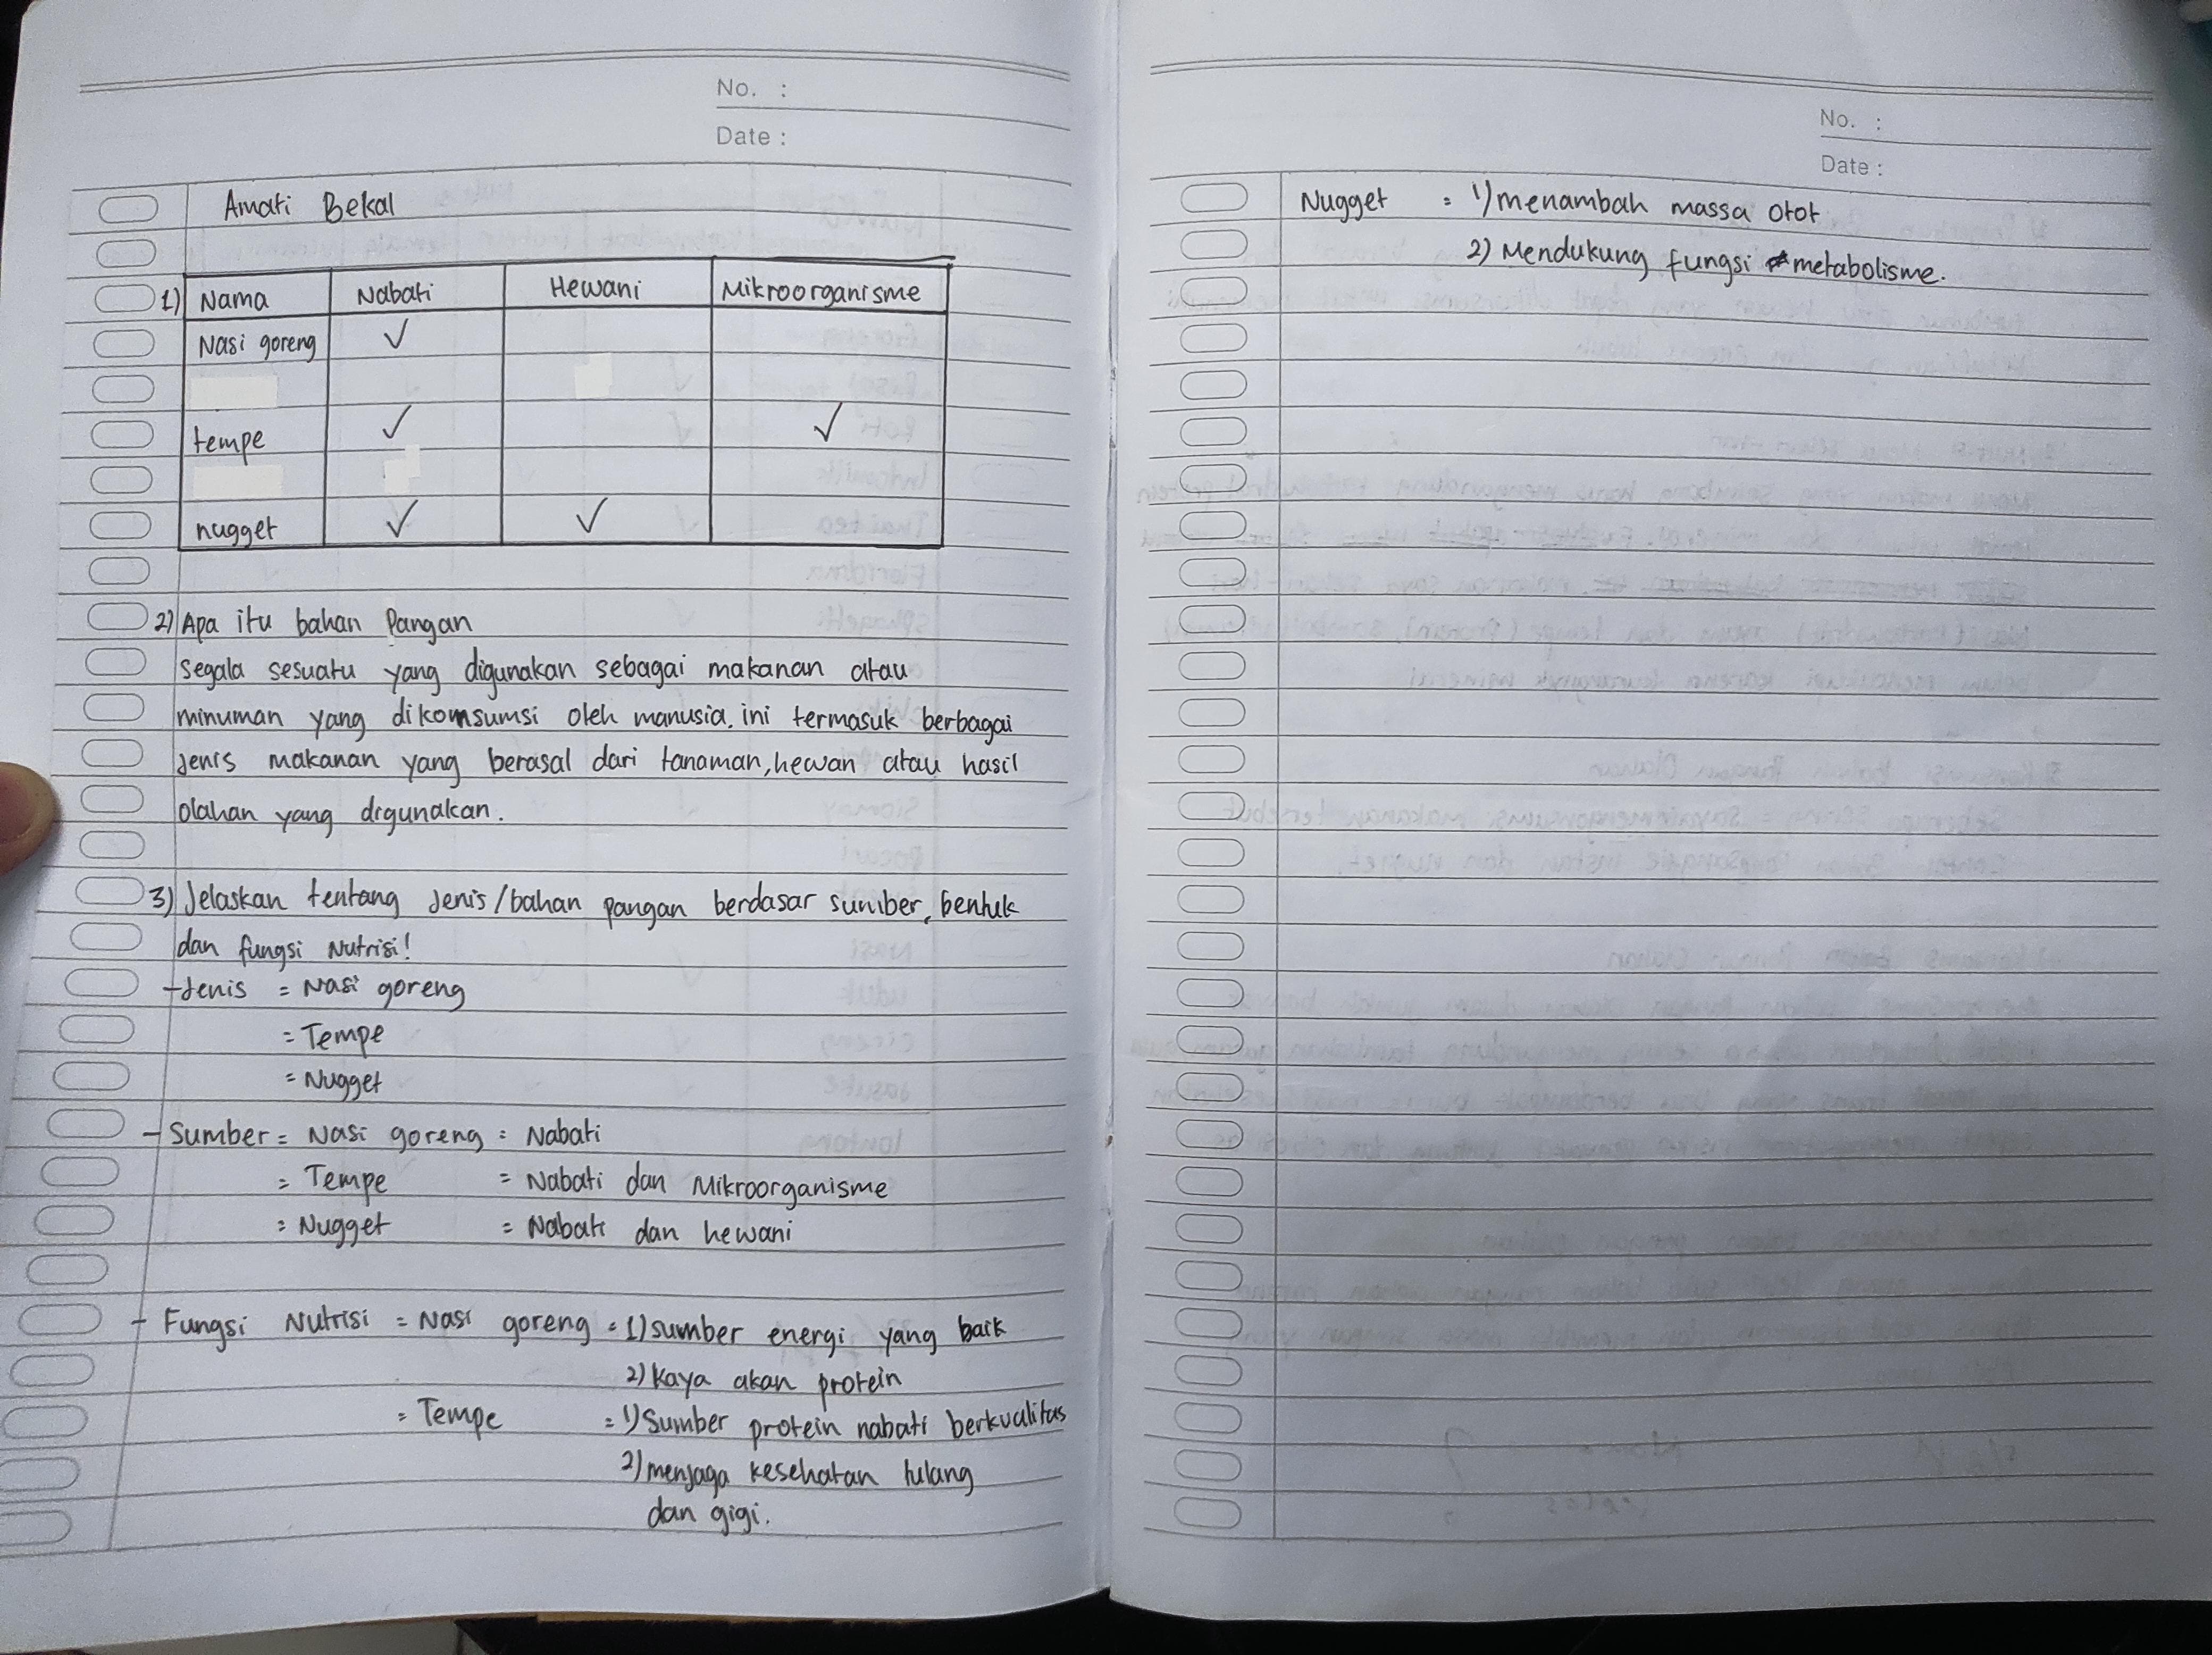 No. :
Date :
Amati Bekal
1) Nama Nabati Hewani Mikroorganisme
Nasi goreng ✓
tempe ✓ ✓
nugget ✓ ✓
2) Apa itu bahan Pangan
segala sesuatu yang digunakan sebagai makanan atau
minuman yang dikomsumsi oleh manusia. ini termasuk berbagai
jenis makanan yang berasal dari tanaman, hewan atau hasil
olahan yang digunakan.
3) Jelaskan tentang Jenis/bahan pangan berdasar sumber, bentuk
dan fungsi Nutrisi!
- Jenis = Nasi goreng
= Tempe
= Nugget
- Sumber = Nasi goreng = Nabati
= Tempe = Nabati dan Mikroorganisme
= Nugget = Nabati dan hewani
- Fungsi Nutrisi = Nasi goreng = 1) sumber energi yang baik
2) Kaya akan protein
= Tempe = 1) Sumber protein nabati berkualitas
2) menjaga kesehatan tulang
dan gigi.
No. :
Date :
Nugget = 1) menambah massa otot
2) Mendukung fungsi metabolisme.